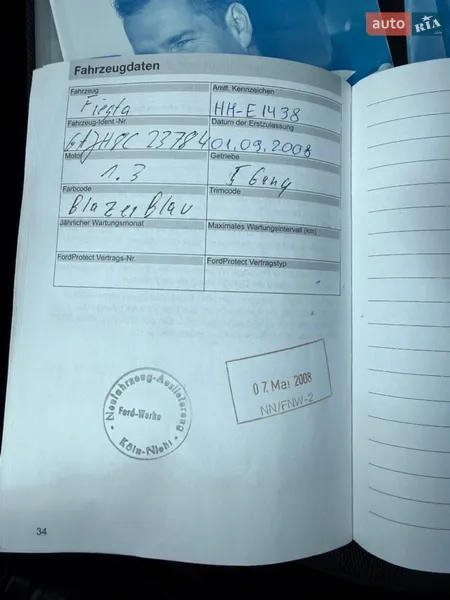 auto RIA
Fahrzeugdaten
Fahrzeug
Fiesta
Amtl. Kennzeichen
HH-E1438
Fahrzeug-Ident.-Nr.
23784
Datum der Erstzulassung
01.09.2008
Motor
1.3
Getriebe
5 Gang
Farbcode
Blazer Blau
Trimcode
Jährlicher Wartungsmonat
Maximales Wartungsintervall (km)
FordProtect Vertrags-Nr.
FordProtect Vertragstyp
Neufahrzeug-Auslieferung
Ford-Werke
Köln-Niehl
07. Mai 2008
NN/FNW-2
34